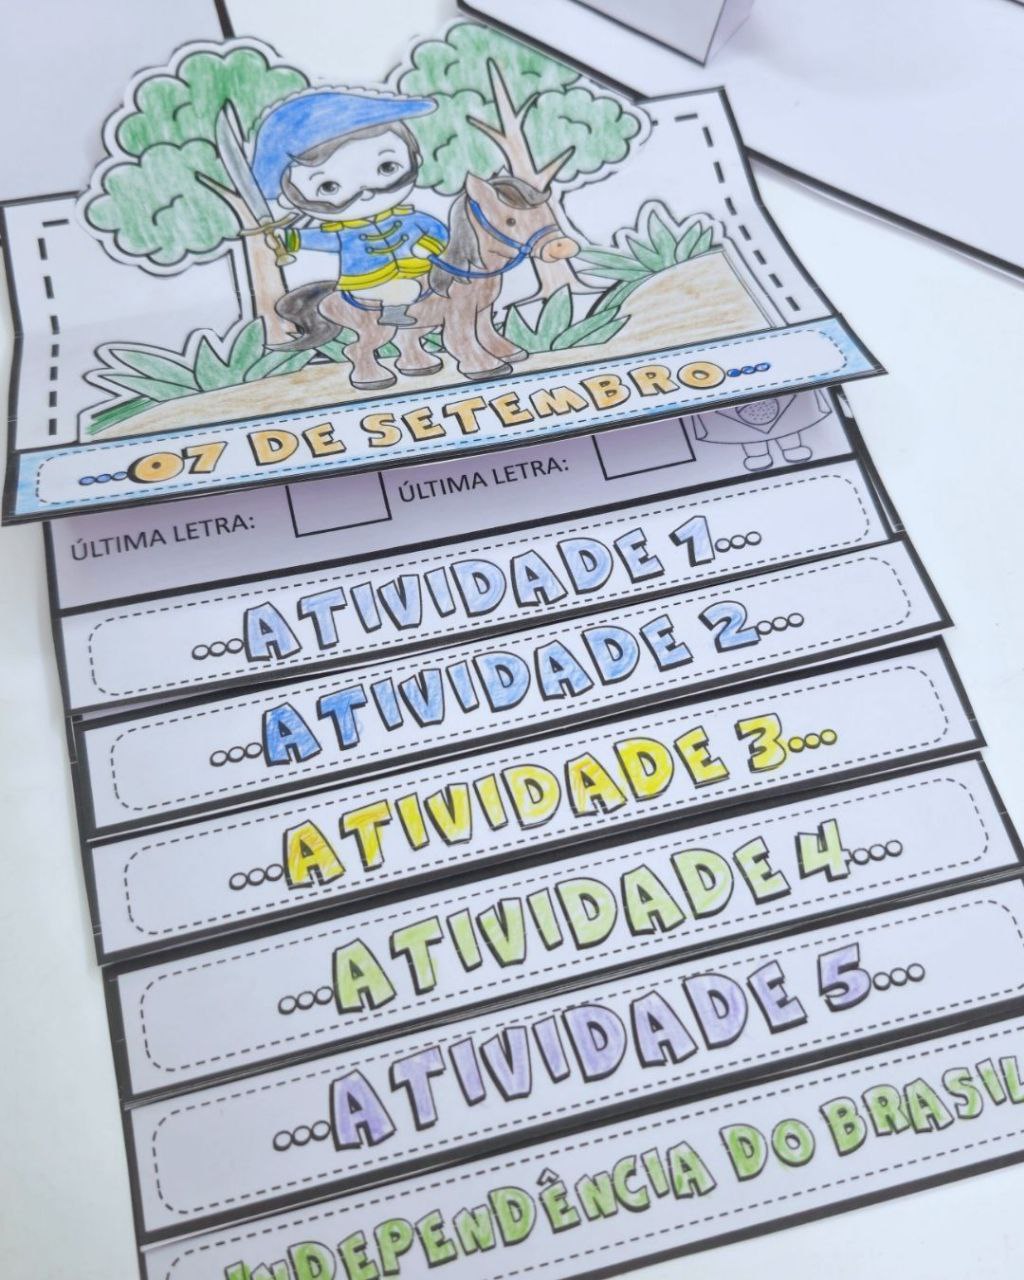 ...07 DE SETEMBRO...
ÚLTIMA LETRA: ÚLTIMA LETRA:
...ATIVIDADE 1...
...ATIVIDADE 2...
...ATIVIDADE 3...
...ATIVIDADE 4...
...ATIVIDADE 5...
INDEPENDÊNCIA DO BRASIL